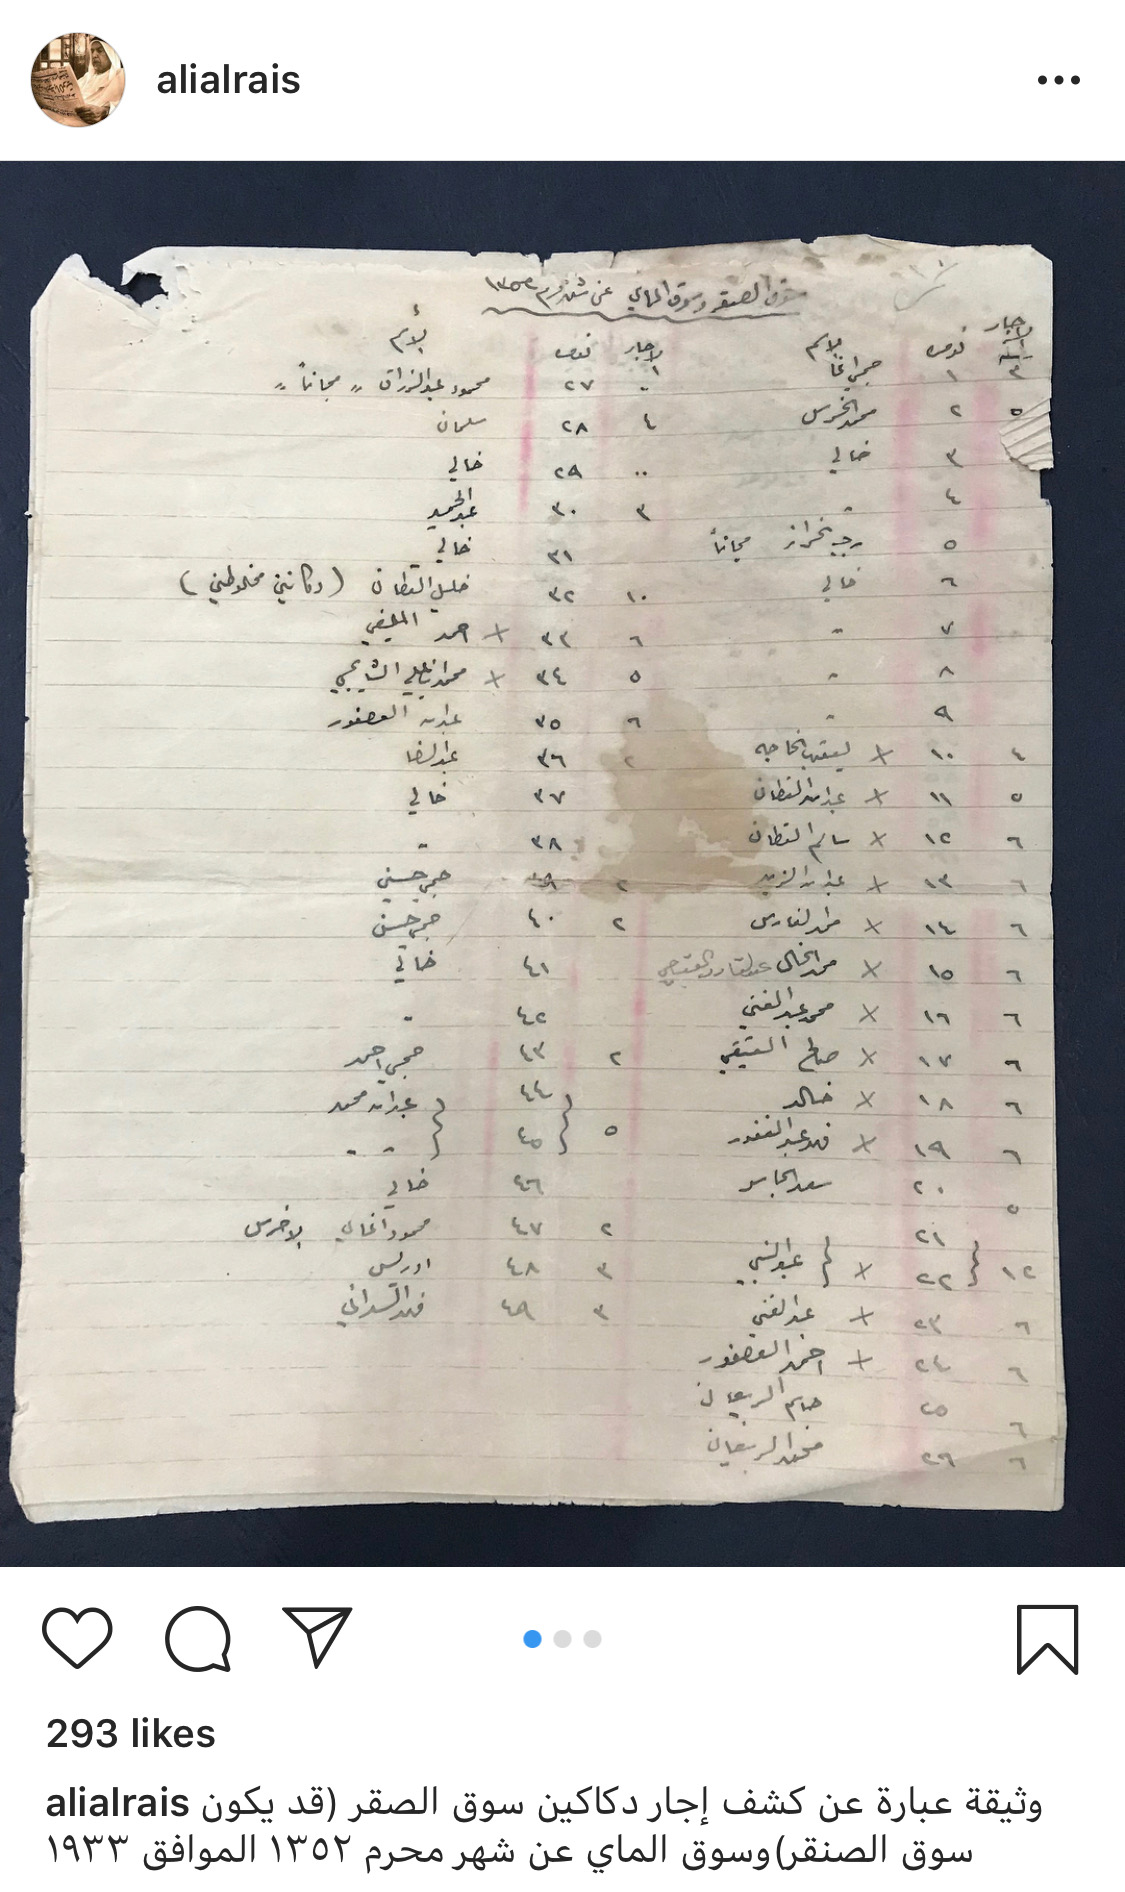 alialrais
سوق الصنقر وسوق الماي عن شهر محرم ١٣٥٢
الاجار نومره الاسم الاجار نومره الاسم
٣ ١ حجي اغا ٠٠ ٢٧ محمود عبدالرزاق " مجاناً "
٥ ٢ محمد الخرس ٤ ٢٨ سلمان
٣ خالي ٠٠ ٢٩ خالي
٤ " ٣ ٣٠ عبدالحميد
٥ رجب خراز مجاناً ٣١ خالي
٦ خالي ١٠ ٣٢ خليل القطان ( دكانين مخلوطين )
٧ " ٦ ٣٣ × احمد
٨ " ٥ ٣٤ × محمد
٩ " ٦ ٣٥ عبدالله العصفور
٤ ١٠ × يعقوب الخاجه ٢ ٣٦ عبدالرضا
٥ ١١ × عبدالله القطان ٣٧ خالي
٦ ١٢ × سالم القطان ٣٨ "
٦ ١٣ × عبدالله الزيد ٢ ٣٩ حجي حسين
٦ ١٤ × محمد الفارس ٢ ٤٠ حجي حسن
٦ ١٥ × محمد الخال ٤١ خالي
٦ ١٦ × محمد عبدالغني ٤٢ "
٦ ١٧ × صالح العتيقي ٢ ٤٣ حجي احمد
٦ ١٨ × خالد ٤٤ عبدالله محمد
٦ ١٩ × فهد عبدالغفور ٥ ٤٥ " "
٥ ٢٠ سعد الجاسر ٤٦ خالي
٢١ ٢ ٤٧ محمود الاخرس
١٢ ٢٢ × عبدالنبي ٣ ٤٨ ادريس
٦ ٢٣ × عبدالغني ٣ ٤٩ فهد
٦ ٢٤ × احمد العصفور
٦ ٢٥ جاسم الربيعان
٦ ٢٦ محمد الربيعان
293 likes
alialrais وثيقة عبارة عن كشف إجار دكاكين سوق الصقر (قد يكون
سوق الصنقر)وسوق الماي عن شهر محرم ١٣٥٢ الموافق ١٩٣٣